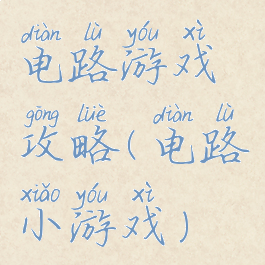 diàn lù yóu xì
电路游戏
gōng lüè diàn lù
攻略(电路
xiǎo yóu xì
小游戏)